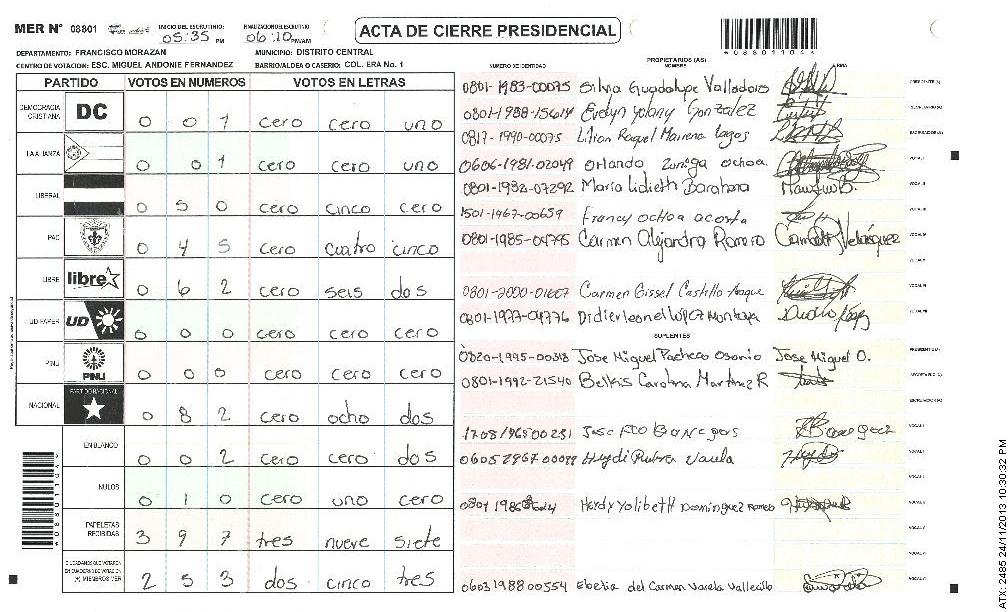 MER Nº 08801 INICIO DEL ESCRUTINIO: 05:35 PM FINALIZACION DEL ESCRUTINIO 06:10 PM/AM ACTA DE CIERRE PRESIDENCIAL
DEPARTAMENTO: FRANCISCO MORAZAN MUNICIPIO: DISTRITO CENTRAL
CENTRO DE VOTACION: ESC. MIGUEL ANDONIE FERNANDEZ BARRIO/ALDEA O CASERIO: COL. ERA No. 1
PARTIDO VOTOS EN NUMEROS VOTOS EN LETRAS
DEMOCRACIA CRISTIANA DC 0 0 1 cero cero uno
LA ALIANZA 0 0 1 cero cero uno
LIBERAL 0 5 0 cero cinco cero
PAC 0 4 5 cero cuatro cinco
LIBRE libre 0 6 2 cero seis dos
UD-FAPER UD 0 0 0 cero cero cero
PINU PINU 0 0 0 cero cero cero
NACIONAL PARTIDO NACIONAL 0 8 2 cero ocho dos
EN BLANCO 0 0 2 cero cero dos
NULOS 0 1 0 cero uno cero
PAPELETAS RECIBIDAS 3 9 7 tres nueve siete
CIUDADANOS QUE VOTARON EN CUADERNO DE VOTACION (+) MIEMBROS MER 2 5 3 dos cinco tres
PROPIETARIOS (AS)
NUMERO DE IDENTIDAD NOMBRE FIRMA
0801-1983-00075 Silvia Guadalupe Valladares
0801-1988-15614 Evelyn Yolany Gonzalez
0817-1990-00075 Lilian Raquel Mairena Lagos
0606-1981-02049 Orlando Zuniga Ochoa
0801-1982-07292 Maria Lidieth Barahona
1501-1967-00659 Francy Ochoa acosta
0801-1985-04795 Carmen Alejandra Romero
Carmen Gissel Castillo
0801-1977-04776 Didier leonel Lopez Montoya
SUPLENTES
0820-1995-00318 Jose Miguel Pacheco Osorio Jose Miguel O.
0801-1992-21540 Belkis Carolina Martinez R
Jose
Heydi Varela
Domínguez
0603198800554 del Carmen Varela Vallecillo
*08801104*
ATX: 2485 24/11/2013 10:30:32 PM